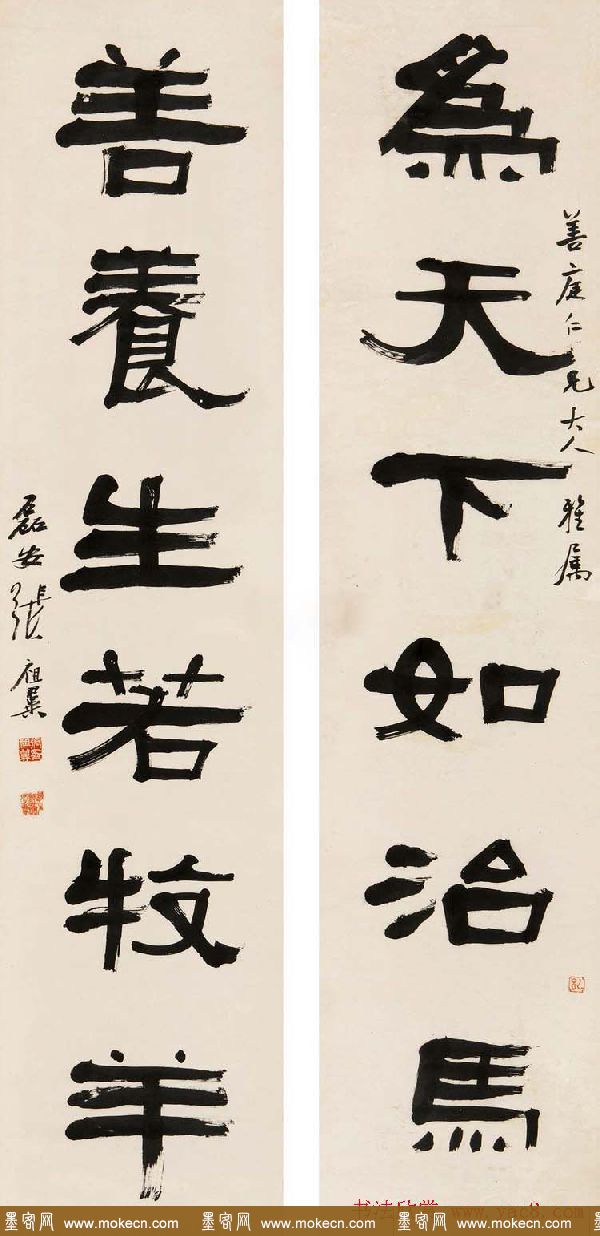 為天下如治馬
善庭仁兄大人 雅属
善養生若牧羊
磊盦張祖翼
书法欣赏 www.yac8.com
墨客网 www.mokecn.com 墨客网 www.mokecn.com 墨客网 www.mokecn.com